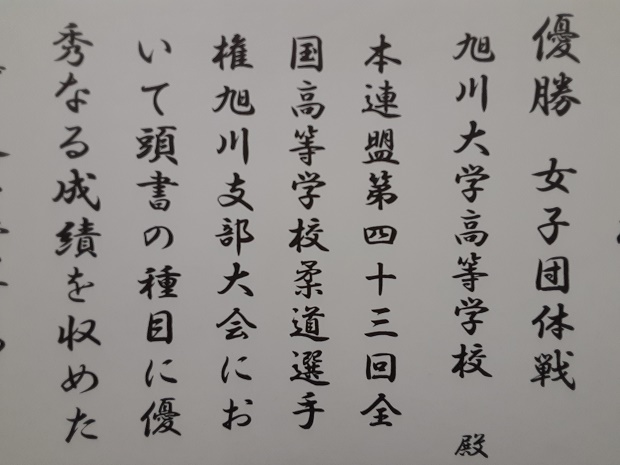 優勝 女子団体戦
旭川大学高等学校 殿
本連盟第四十三回全
国高等学校柔道選手
権旭川支部大会にお
いて頭書の種目に優
秀なる成績を収めた